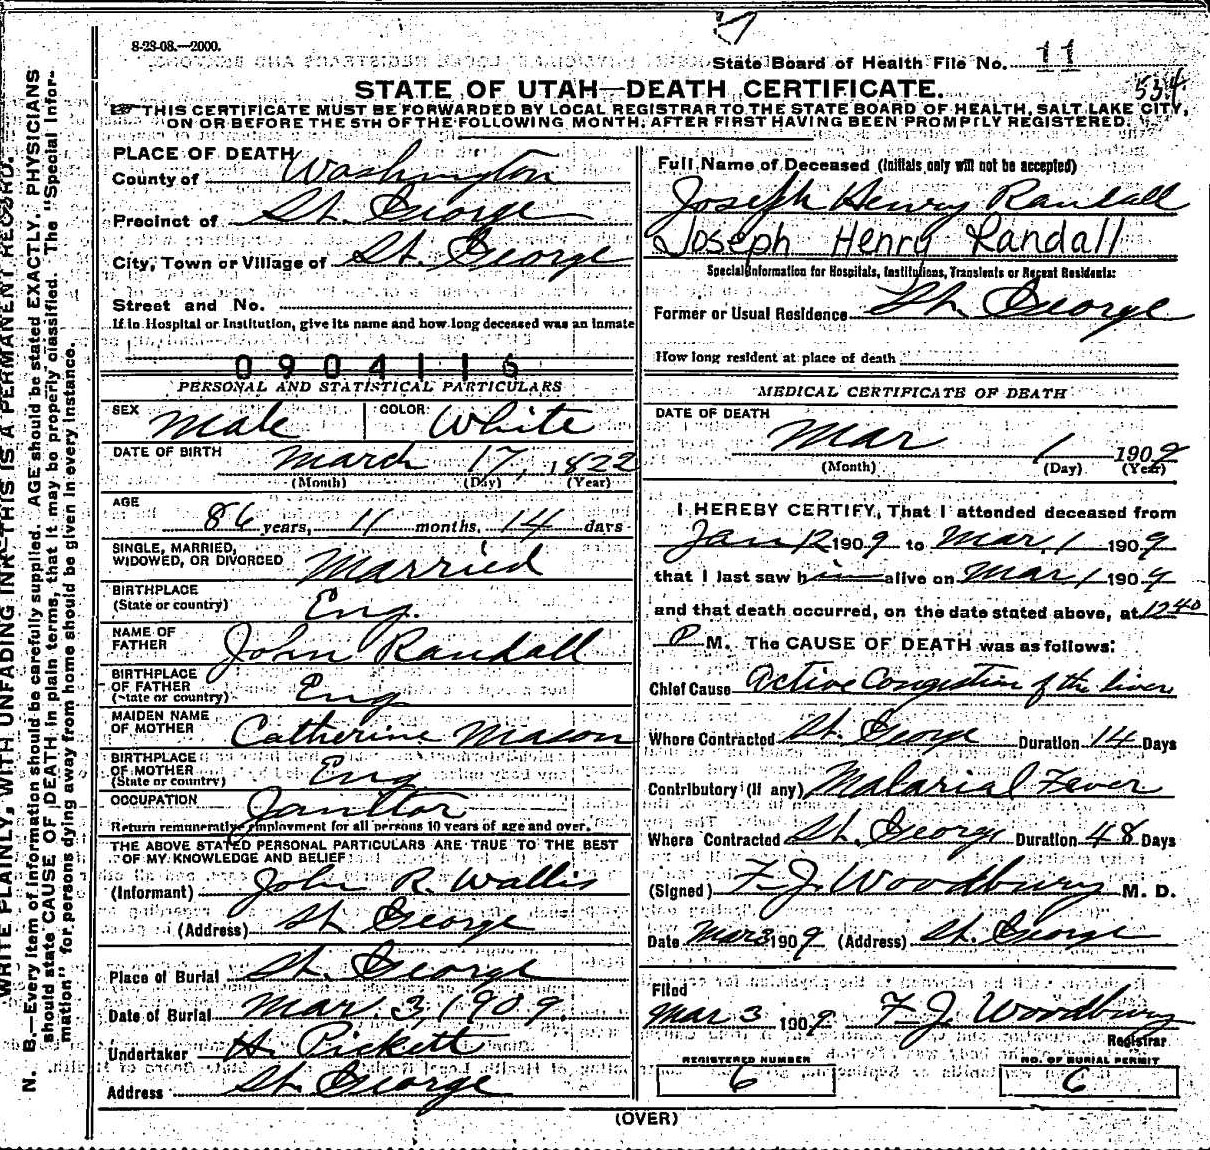 8-23-08.—2000.
State Board of Health File No. 11
534
STATE OF UTAH—DEATH CERTIFICATE.
THIS CERTIFICATE MUST BE FORWARDED BY LOCAL REGISTRAR TO THE STATE BOARD OF HEALTH, SALT LAKE CITY,
ON OR BEFORE THE 5TH OF THE FOLLOWING MONTH, AFTER FIRST HAVING BEEN PROMPTLY REGISTERED.
WRITE PLAINLY, WITH UNFADING INK—THIS IS A PERMANENT RECORD.
N. B.—Every item of information should be carefully supplied. AGE should be stated EXACTLY. PHYSICIANS
should state CAUSE OF DEATH in plain terms, that it may be properly classified. The "Special Infor-
mation" for persons dying away from home should be given in every instance.
PLACE OF DEATH
County of Washington
Precinct of St. George
City, Town or Village of St. George
Street and No.
If in Hospital or Institution, give its name and how long deceased was an inmate
0904116
PERSONAL AND STATISTICAL PARTICULARS
SEX Male COLOR White
DATE OF BIRTH March 17, 1822
(Month) (Day) (Year)
AGE
86 years, 11 months, 14 days
SINGLE, MARRIED,
WIDOWED, OR DIVORCED Married
BIRTHPLACE
(State or country) Eng.
NAME OF
FATHER John Randall
BIRTHPLACE
OF FATHER
(State or country) Eng
MAIDEN NAME
OF MOTHER Catherine Mason
BIRTHPLACE
OF MOTHER
(State or country) Eng
OCCUPATION Janitor
Return remunerative employment for all persons 10 years of age and over.
THE ABOVE STATED PERSONAL PARTICULARS ARE TRUE TO THE BEST
OF MY KNOWLEDGE AND BELIEF
(Informant) John R. Wallis
(Address) St George
Place of Burial St. George
Date of Burial Mar. 3, 1909.
Undertaker H. Pickett
Address St. George
Full Name of Deceased (Initials only will not be accepted)
Joseph Henry Randall
Joseph Henry Randall
Special Information for Hospitals, Institutions, Transients or Recent Residents:
Former or Usual Residence St. George
How long resident at place of death
MEDICAL CERTIFICATE OF DEATH
DATE OF DEATH
Mar 1 1909
(Month) (Day) (Year)
I HEREBY CERTIFY, That I attended deceased from
Jan 12 1909 to Mar. 1 1909
that I last saw him alive on Mar 1 1909
and that death occurred, on the date stated above, at 1240
P M. The CAUSE OF DEATH was as follows:
Chief Cause Active Congestion of the liver
Where Contracted St. George Duration 14 Days
Contributory (If any) Malarial Fever
Where Contracted St. George Duration 48 Days
(Signed) F. J. Woodbury M. D.
Date Mar 3 1909 (Address) St. George
Filed
Mar 3 1909 F. J. Woodbury
Registrar
REGISTERED NUMBER NO. OF BURIAL PERMIT
6 6
(OVER)